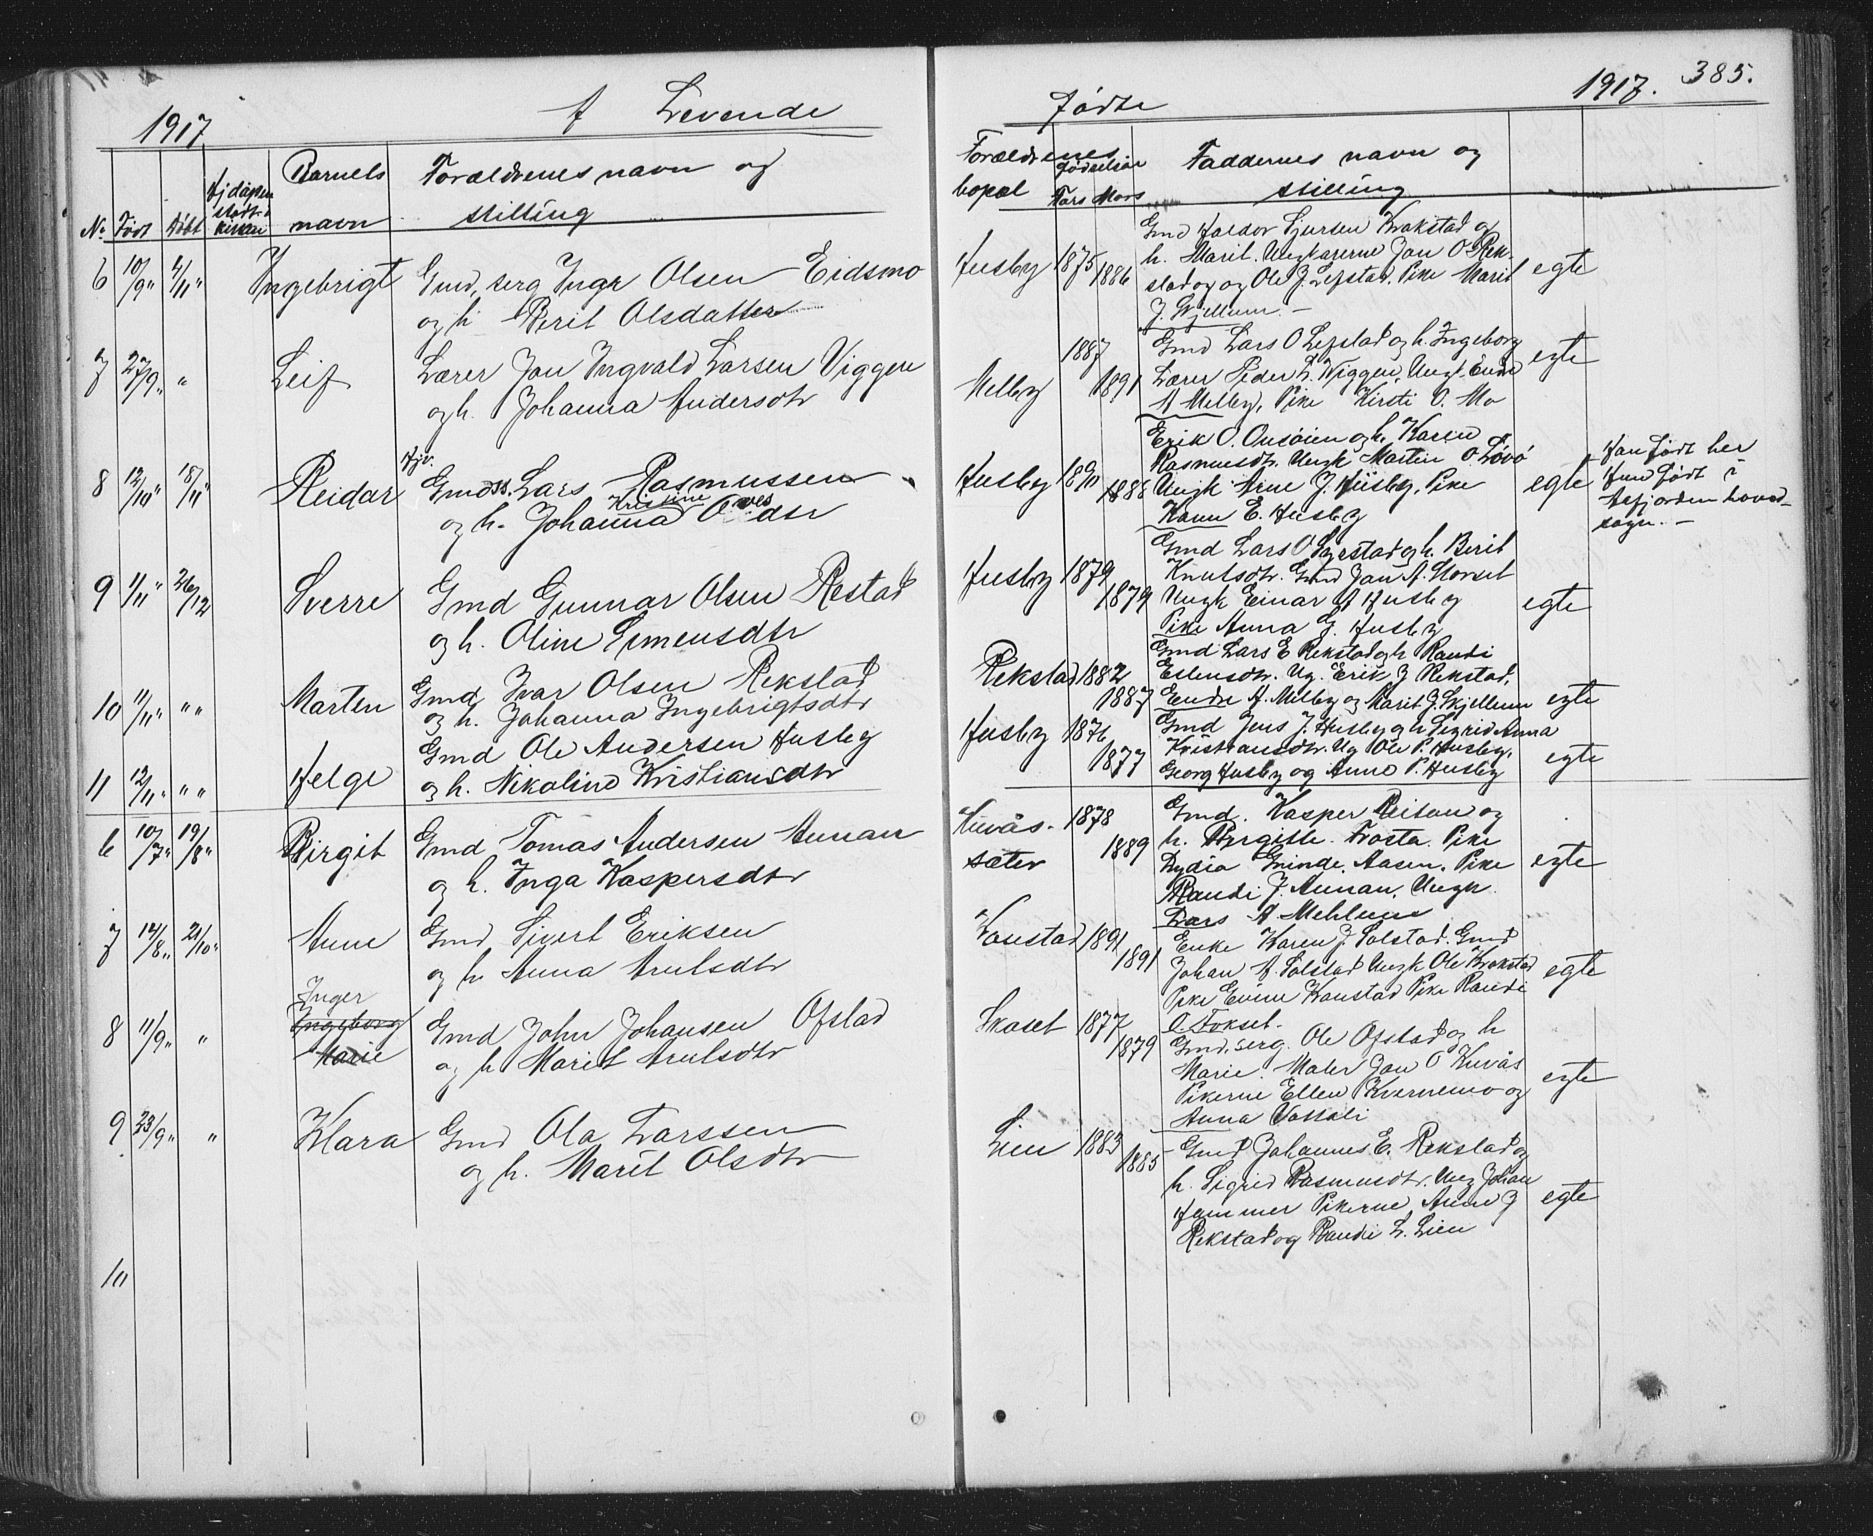 1917 A Levende
Nr. Født Døbt Hjdøpen stadf. i kirken Barnets navn Foreldrenes navn og stilling
6 10/9 4/11 Ingebrigt Gmd, serg Inge Olsen Eidsmo
og h Berit Olsdatter
7 27/9 " Leif Lærer Jon Ingvald Larsen Viggen
og h. Johanna Andersdtr
8 12/10 18/11 Reidar Hjv. Gmdss. Lars Rasmussen
og h. Johanna Kristine
9 1/11 26/12 Sverre Gmd Gunnar Olsen Restad
og h. Oline Simensdtr
10 11/11 " " Marten Gmd Ivar Olsen Rekstad
og h. Johanna Ingebrigtsdtr
11 12/11 " " Helge Gmd Ole Andersen Husby
og h. Nikoline Kristiansdtr
6 10/7 19/8 Birgit Gmd Tomas Andersen Aunan
og h. Inga Kaspersdtr
7 14/8 21/10 Anne Gmd Sivert Eriksen
og h Anna Arntsdtr
Inger
8 11/9 " Ingeborg Marie Gmd John Johansen Ofstad
og h Marit Arntsdtr
9 23/9 " Klara Gmd Ola Larssen
og h. Marit Olsdtr
10
Fødte 1917. 385.
Forældrenes bopæl fødselsår Fars Mors Faddernes navn og
stilling
Gmd Haldor Sjursen Krokstad og
Husby 1875 1886 h. Marit. Ungkarerne Jon O Rek-
stad og Ole J. Lefstad. Pike Marit egte
J. Skjellum. -
1887 Gmd Lars O Lefstad og h. Ingeborg egte
Melby 1891 Lærer Peder L. Viggen, Ungk. Endre
A Melby, Pike Kirsti O. Mo
Erik O. Onsøien og h. Karen
Husby 1890 Rasmusdtr. Ungk Martin O. Løvø
1888 Ungk Arne J. Husby, Pike egte
Karen E. Husby
Han født her
Hun født i
Aefjorden hoved-
sogn. -
Gmd Lars O Lefstad og h. Berit
Husby 1879 Knutsdtr. Gmd Jon A. Storset
1879 Ungk Einar A Husby egte
Pike Anna G. Husby
Gmd Lars E Rekstad og h Randi
Rekstad 1882 Estensdtr. Ug. Erik J Rekstad,
1887 Endre A. Melby og Marit J. Skjellum egte
Husby 1876 Gmd Jens J. Husby og h Sigrid Anna
Kristiansdtr. Ug Ole P. Husby,
1877 Georg Husby og Anne P. Husby egte
Kuvås- 1878 Gmd. Kasper Reitan og
sæter 1889 h. Birgitte. Frosta. Pike
Lydia Grinde. Aasen. Pike egte
Randi J. Aunan. Ungk.
Lars A Mehlum
Konstad 1891 Enke Karen J. Solstad. Gmd
1891 Johan A. Solstad Ungk Ole Krokstad egte
Pike Evine Konstad Pike Randi
O. Fokset.
Skaset 1877 1879 Gmd, serg. Ole Ofstad og h
Marie. Maler Jon O Kuvås
Pikerne Ellen Kvernmo og egte
Anna Vottali
Lien 1883 1885 Gmd Johannes E. Rekstad og
h. Sigrid Rasmusdtr. Ung Johan
Hammer Pikerne Anne J egte
Rekstad og Randi L. Lien